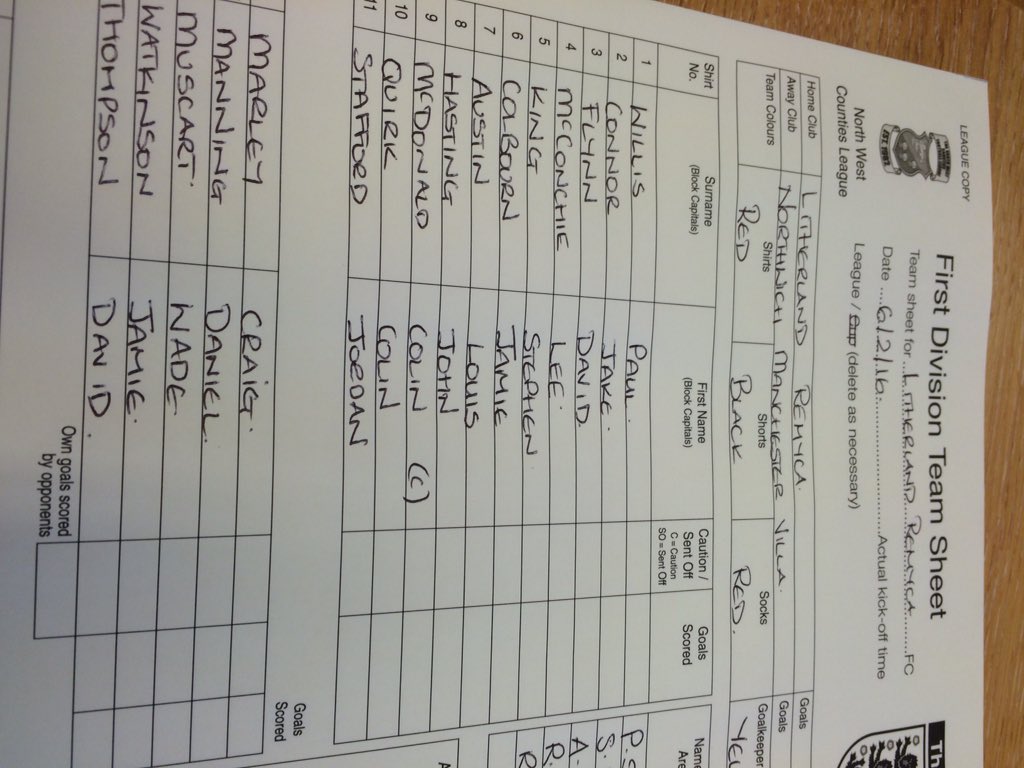 LEAGUE COPY
North West
Counties League
First Division Team Sheet
Team sheet for LITHERLAND REMYCA FC
Date 6/2/16 Actual kick-off time
League / Cup (delete as necessary)
Home Club LITHERLAND REMYCA Goals
Away Club NORTHWICH MANCHESTER VILLA Goals
Team Colours Shirts RED Shorts BLACK Socks RED. Goalkeeper
Shirt No. Surname (Block Capitals) First Name (Block Capitals) Caution / Sent Off C = Caution SO = Sent Off Goals Scored
1 WILLIS PAUL.
2 CONNOR JAKE.
3 FLYNN DAVID.
4 MCCONCHIE LEE.
5 KING STEPHEN.
6 COLBOURN JAMIE
7 AUSTIN LOUIS
8 HASTING JOHN
9 MCDONALD COLIN (C)
10 QUIRK COLIN
11 STAFFORD JORDAN
Goals Scored
MARLEY CRAIG.
MANNING DANIEL.
MUSCART. WADE.
WATKINSON JAMIE.
THOMPSON DAVID.
Own goals scored
by opponents